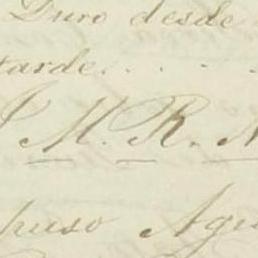 Duro desde
tarde. . . . .
J M. R. N
puso Agu